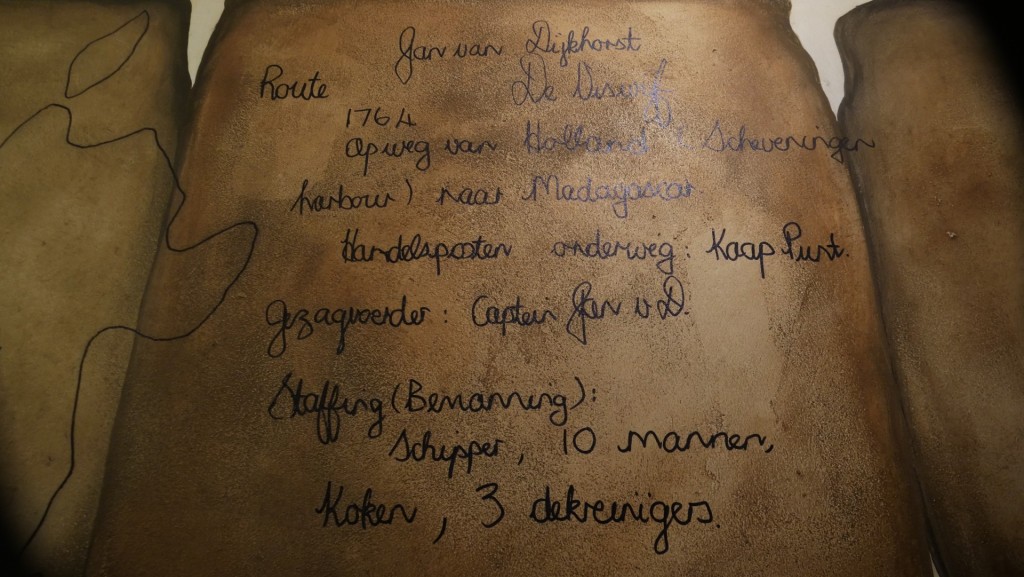 Jan van Dijkhorst
Route De
1764
op weg van Holland ( Scheveningen
harbour) naar Madagascar.
Handelsposten onderweg: Kaap Punt.
Gezagvoerder: Captein Jan v D.
Staffing (Bemanning):
Schipper, 10 mannen,
Koken, 3 dekreinigers.